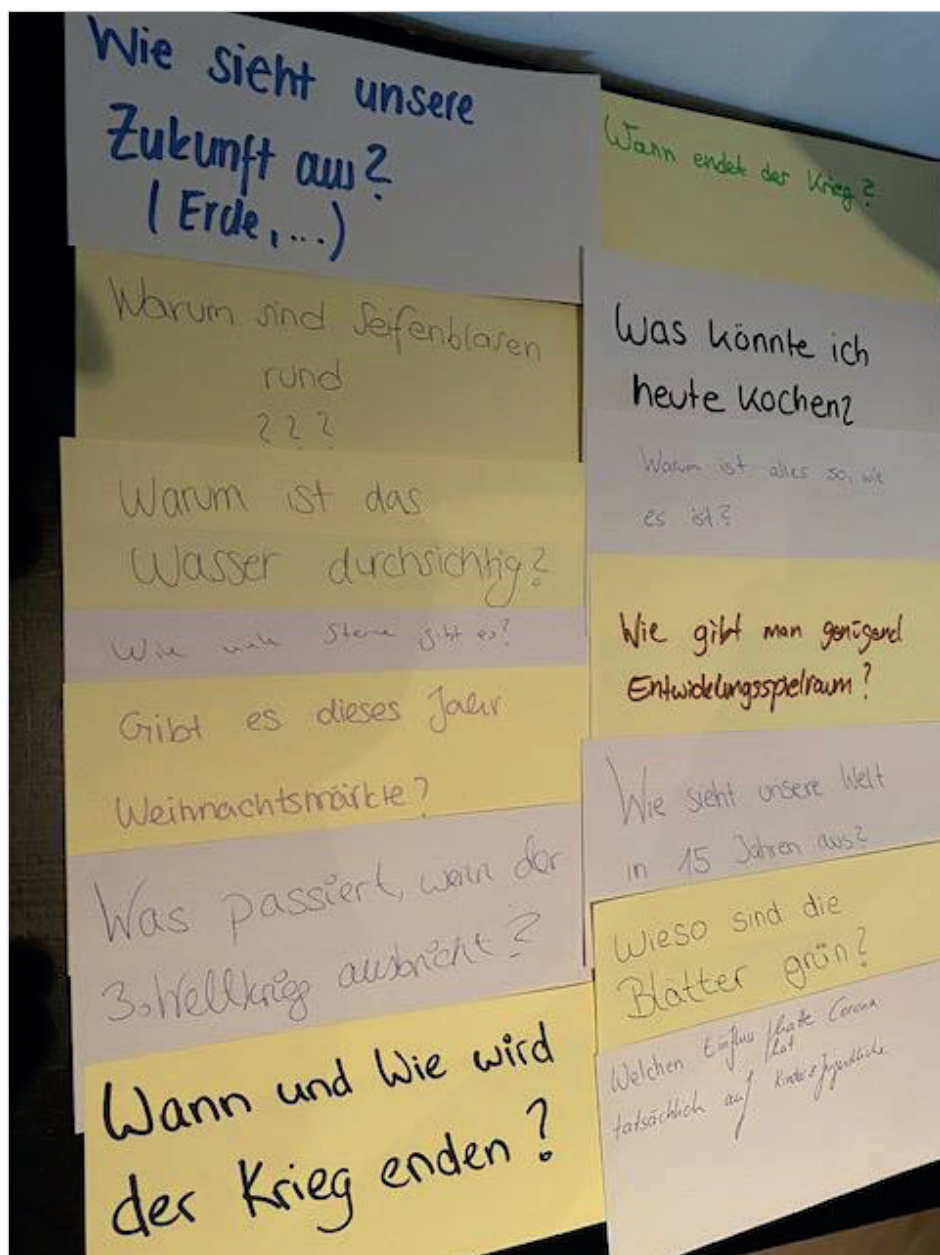 Wie sieht unsere
Zukunft aus?
(Erde,...)
Warum sind Seifenblasen
rund
???
Warum ist das
Wasser durchsichtig?
Wie viele Sterne gibt es?
Gibt es dieses Jahr
Weihnachtsmärkte?
Was passiert, wenn der
3. Weltkrieg ausbricht?
Wann und Wie wird
der Krieg enden?
Wann endet der Krieg?
Was könnte ich
heute kochen?
Warum ist alles so, wie
es ist?
Wie gibt man genügend
Entwicklungsspielraum?
Wie sieht unsere Welt
in 15 Jahren aus?
Wieso sind die
Blätter grün?
Welchen Einfluss hatte Corona
hat
tatsächlich auf Kinder + Jugendliche